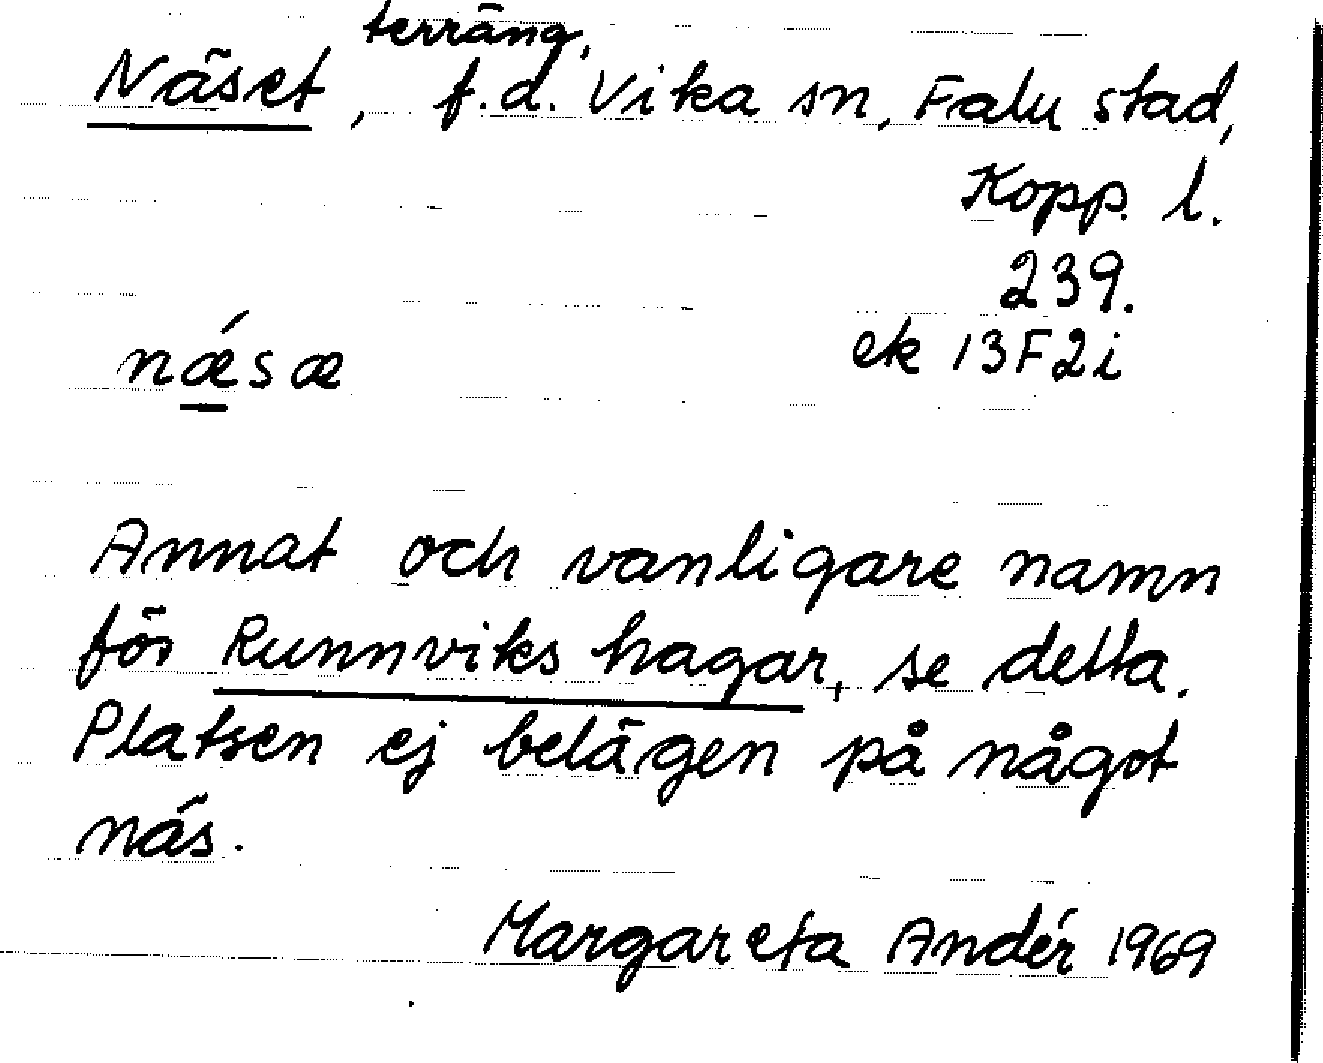 Näset, terräng, f.d. Vika sn, Falu stad,
Kopp. l.
239.
nǽsæ ek 13F2i
Annat och vanligare namn
för Runnviks hagar, se detta.
Platsen ej belägen på något
näs.
Margareta Andér 1969